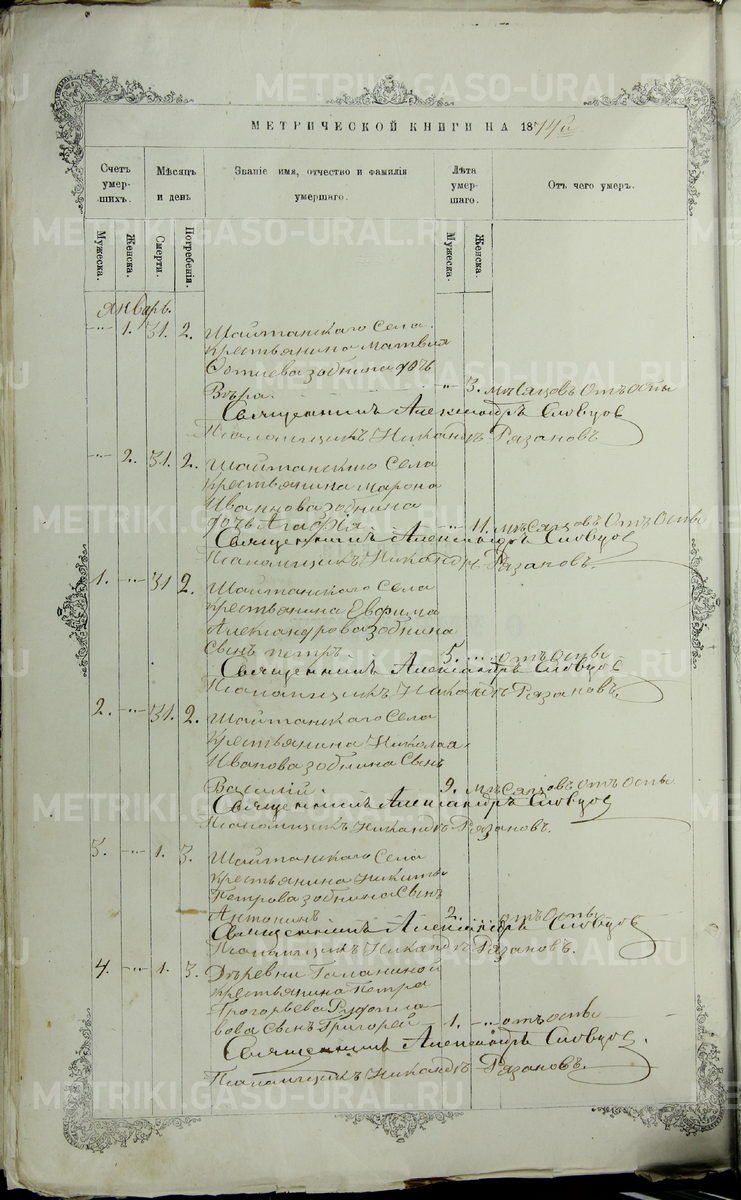 МЕТРИЧЕСКОЙ КНИГИ НА 1874й
Счетъ умер-шихъ.
Мѣсяцъ и день
Званіе имя, отчество и фамилія умершаго.
Лѣта умер-шаго.
Отъ чего умеръ.
Мужеска.
Женска.
Смерти.
Погребенія.
Мужеска.
Женска.
Январь.
-"- 1. 31. 2. Шайтанскаго Села
крестьянина Матвѣя
Зобнина дочь
Вѣра. -"- 3. мѣсяцовъ отъ оспы
Священникъ Александръ Словцов
Псаломщикъ Никандръ Рязановъ
-"- 2. 31. 2. Шайтанскаго Села
крестьянина Марона
Иванова Зобнина
дочь Агафія. -"- 11. мѣсяцовъ отъ оспы
Священникъ Александръ Словцов
Псаломщикъ Никандръ Рязановъ.
1. -"- 31 2. Шайтанскаго Села
крестьянина Евфима
Александрова Зобнина
сынъ Петръ 5. отъ оспы
Священникъ Александръ Словцов
Псаломщикъ Никандръ Рязановъ.
2. -"- 31. 2. Шайтанскаго Села
крестьянина Николая
Иванова Зобнина сынъ
Василій. 9. мѣсяцовъ отъ оспы
Священникъ Александръ Словцов
Псаломщикъ Никандръ Рязановъ.
3. -"- 1. 3. Шайтанскаго Села
крестьянина Никиты
Петрова Зобнина сынъ
Антонинъ 2. отъ оспы
Священникъ Александръ Словцов
Псаломщикъ Никандръ Рязановъ.
4. -"- 1. 3. Деревни Галаниной
крестьянина Петра
Григорьева
сынъ Григорей 1. -"- отъ оспы
Священникъ Александръ Словцов.
Псаломщикъ Никандръ Рязановъ.
METRIKI.GASO-URAL.RU